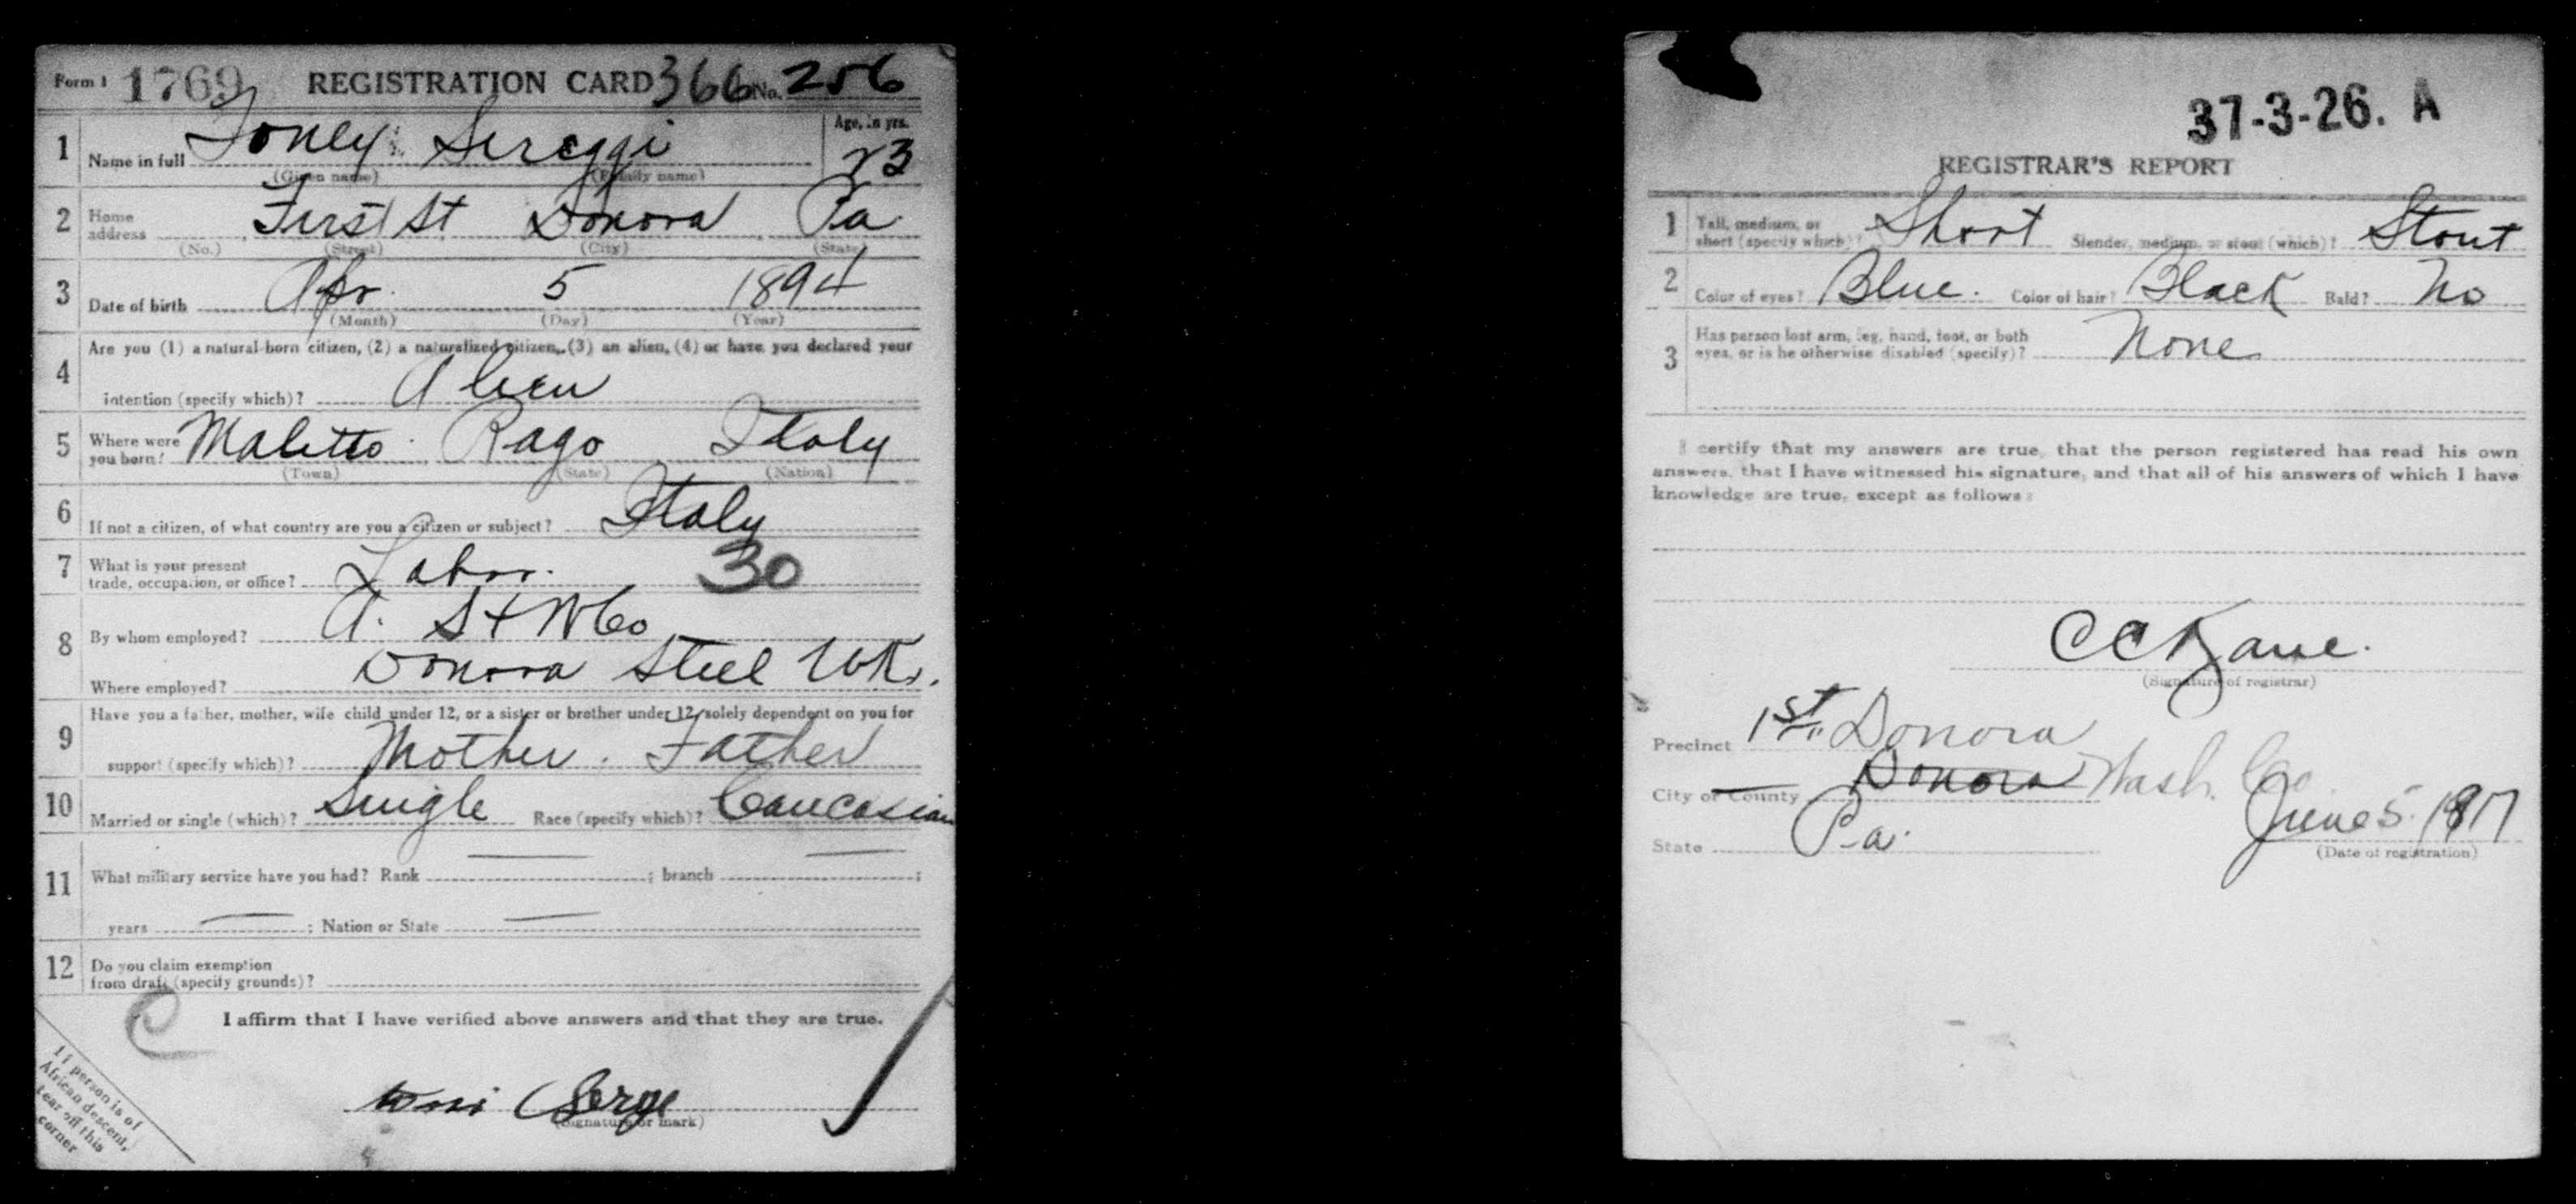 Form 1 1769 REGISTRATION CARD 366 No. 256
1 Name in full Toney Sereggi Age, in yrs. 23
(Given name) (Family name)
2 Home address First St Donora Pa
(No.) (Street) (City) (State)
3 Date of birth Apr. 5 1894
(Month) (Day) (Year)
4 Are you (1) a natural-born citizen, (2) a naturalized citizen, (3) an alien, (4) or have you declared your
intention (specify which)? Alien
5 Where were you born? Maletto Rago Italy
(Town) (State) (Nation)
6 If not a citizen, of what country are you a citizen or subject? Italy
7 What is your present trade, occupation, or office? Labor. 30
8 By whom employed? A. S + W Co
Where employed? Donora Steel Wk.
9 Have you a father, mother, wife child under 12, or a sister or brother under 12, solely dependent on you for
support (specify which)? Mother. Father
10 Married or single (which)? Single Race (specify which)? Caucasian
11 What military service have you had? Rank — ; branch — ;
years — ; Nation or State —
12 Do you claim exemption from draft (specify grounds)?
I affirm that I have verified above answers and that they are true.
C
If person is of
African descent,
tear off this
corner
(Signature or mark)
37-3-26. A
REGISTRAR'S REPORT
1 Tall, medium, or short (specify which)? Short Slender, medium, or stout (which)? Stout
2 Color of eyes? Blue. Color of hair? Black Bald? No
3 Has person lost arm, leg, hand, foot, or both eyes, or is he otherwise disabled (specify)? None
I certify that my answers are true, that the person registered has read his own
answers, that I have witnessed his signature, and that all of his answers of which I have
knowledge are true, except as follows:
C C Kane.
(Signature of registrar)
Precinct 1st Donora
City or County Donora Wash. Co
State Pa. June 5. 1917
(Date of registration)